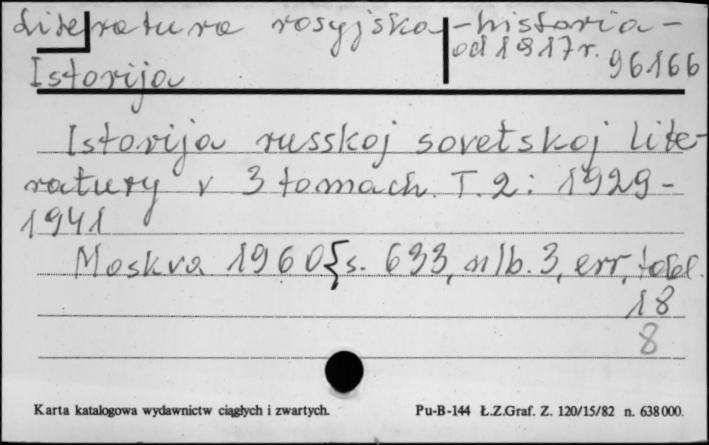 Literatura rosyjska - historia -
od 1917 r.
96166
Istorija
Istorija russkoj sovetskoj lite-
ratury v 3 tomach. T. 2: 1929-
1941
Moskva 1960 s. 633, nlb. 3, err, tabl.
18
8
Karta katalogowa wydawnictw ciągłych i zwartych.
Pu-B-144 Ł.Z.Graf. Z. 120/15/82 n. 638000.